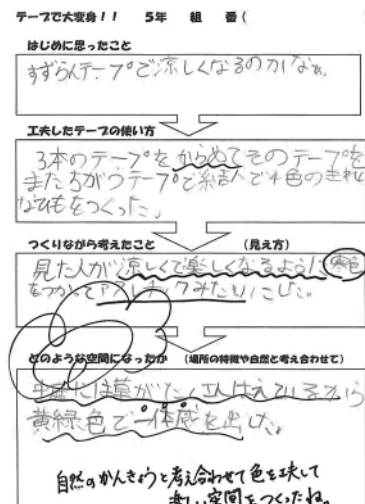 テープで大変身!! 5年 組 番(
はじめに思ったこと
すずらんテープで涼しくなるのかなぁ。
工夫したテープの使い方
3本のテープをからめてそのテープを
またちがうテープで結んで4色のきれい
なひもをつくった。
つくりながら考えたこと (見え方)
見た人が涼しくて楽しくなるように寒色
をつかってアスレチックみたいにした。
どのような空間になったか (場所の特徴や自然と考え合わせて)
中庭には草がたくさんはえているから
黄緑色で一体感を出した。
自然のかんきょうと考え合わせて色を工夫して
楽しい空間をつくったね。